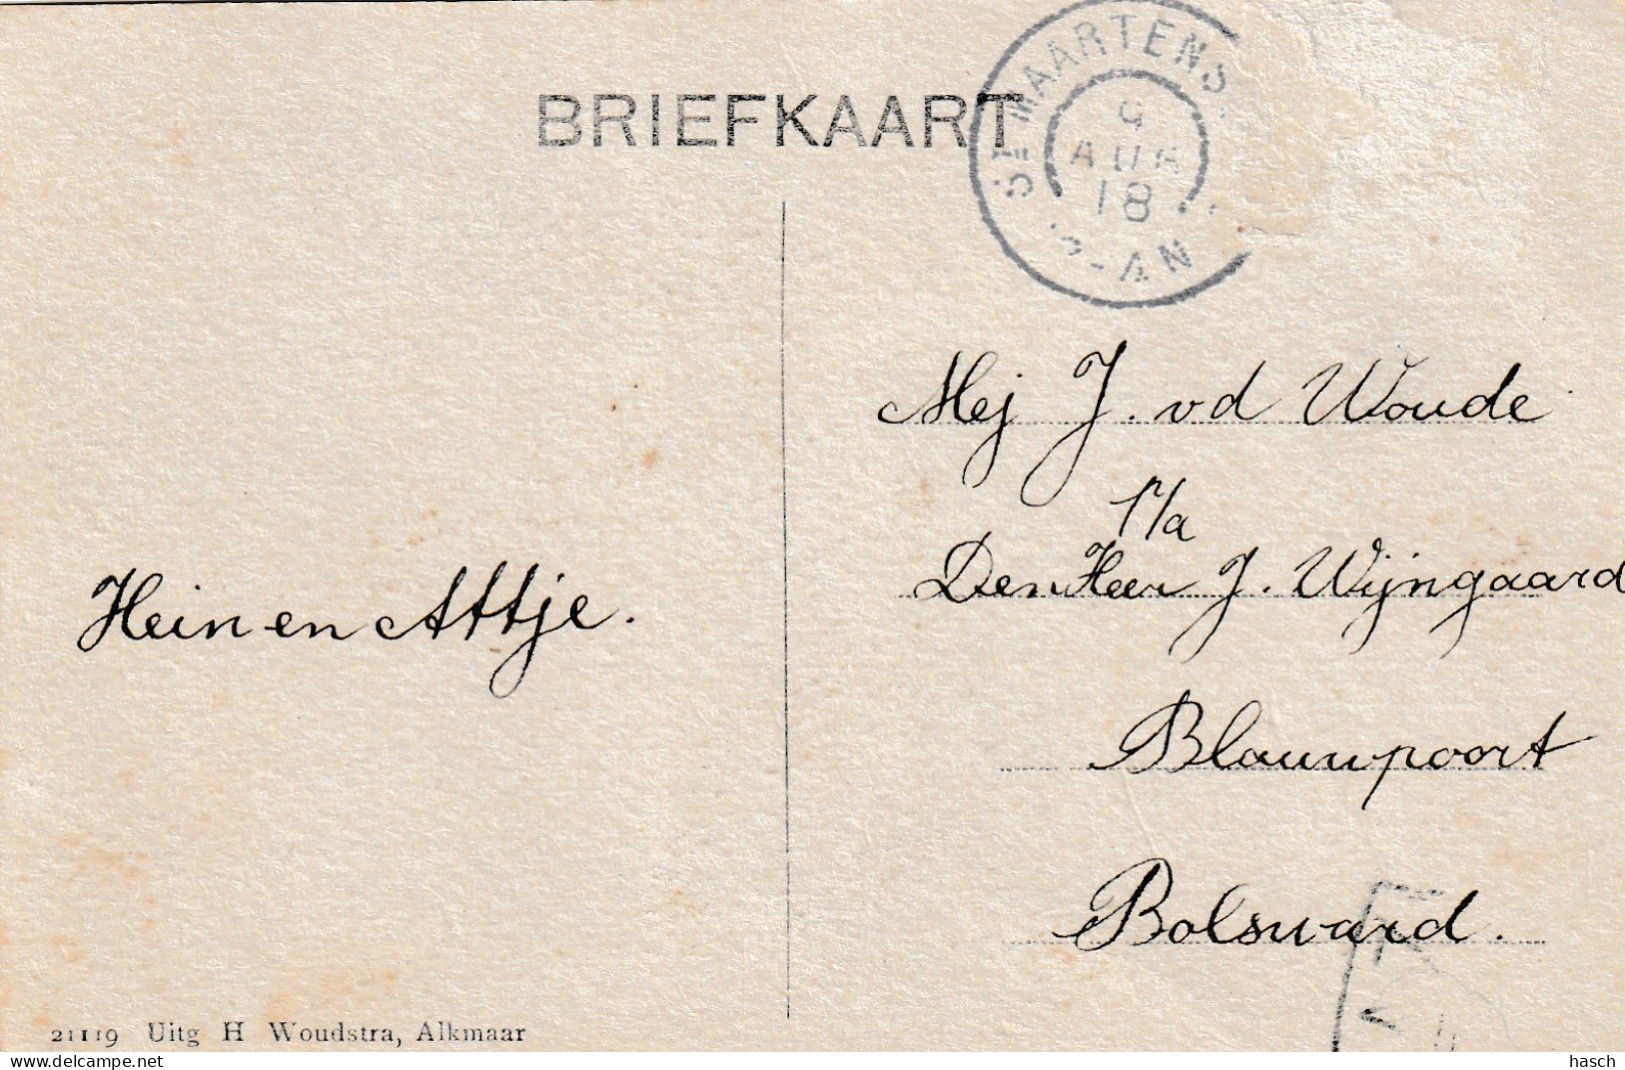 BRIEFKAART
ST. MAARTENS
AUG
18
Mej J. vd Woude
p/a
Den Heer J. Wijngaard
Hein en Attje.
Blauwpoort
Bolsward.
21119 Uitg H Woudstra, Alkmaar
http://www.delcampe.net
hasch